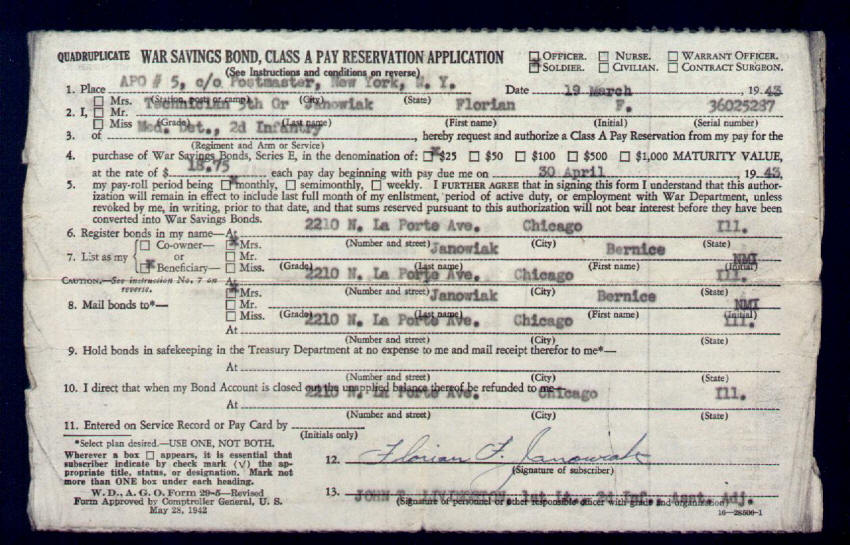 QUADRUPLICATE WAR SAVINGS BOND, CLASS A PAY RESERVATION APPLICATION
(See Instructions and conditions on reverse)
☐ OFFICER. ☐ NURSE. ☐ WARRANT OFFICER.
☒ SOLDIER. ☐ CIVILIAN. ☐ CONTRACT SURGEON.
1. Place APO # 5, c/o Postmaster, New York, N. Y. Date 19 March , 1943
(Station, post or camp) (City) (State)
2. I, ☐ Mrs. ☐ Mr. ☐ Miss Technician 5th Gr Janowiak Florian F. 36025287
(Grade) (Last name) (First name) (Initial) (Serial number)
3. of Med. Det., 2d Infantry , hereby request and authorize a Class A Pay Reservation from my pay for the
(Regiment and Arm or Service)
4. purchase of War Savings Bonds, Series E, in the denomination of: ☒ $25 ☐ $50 ☐ $100 ☐ $500 ☐ $1,000 MATURITY VALUE,
at the rate of $ 18.75 each pay day beginning with pay due me on 30 April , 1943,
5. my pay-roll period being ☒ monthly, ☐ semimonthly, ☐ weekly. I FURTHER AGREE that in signing this form I understand that this author-
ization will remain in effect to include last full month of my enlistment, period of active duty, or employment with War Department, unless
revoked by me, in writing, prior to that date, and that sums reserved pursuant to this authorization will not bear interest before they have been
converted into War Savings Bonds.
6. Register bonds in my name—At 2210 N. La Porte Ave. Chicago Ill.
(Number and street) (City) (State)
7. List as my ☐ Co-owner— or ☒ Beneficiary— ☒ Mrs. ☐ Mr. ☐ Miss. Janowiak Bernice NMI
(Grade) (Last name) (First name) (Initial)
CAUTION.—See instruction No. 7 on reverse.
At 2210 N. La Porte Ave. Chicago Ill.
(Number and street) (City) (State)
8. Mail bonds to*— ☒ Mrs. ☐ Mr. ☐ Miss. Janowiak Bernice NMI
(Grade) (Last name) (First name) (Initial)
At 2210 N. La Porte Ave. Chicago Ill.
(Number and street) (City) (State)
9. Hold bonds in safekeeping in the Treasury Department at no expense to me and mail receipt therefor to me*—
At
(Number and street) (City) (State)
10. I direct that when my Bond Account is closed out the unapplied balance thereof be refunded to me—
At 2210 N. La Porte Ave. Chicago Ill.
(Number and street) (City) (State)
11. Entered on Service Record or Pay Card by
(Initials only)
*Select plan desired.—USE ONE, NOT BOTH.
Wherever a box ☐ appears, it is essential that
subscriber indicate by check mark (√) the ap-
propriate title, status, or designation. Mark not
more than ONE box under each heading.
12. Florian F. Janowiak
(Signature of subscriber)
W. D., A. G. O. Form 29-5—Revised
Form Approved by Comptroller General, U. S.
May 28, 1942
13. JOHN LIVINGSTON, 1st Lt., 2d Inf., Asst. Adj.
(Signature of personnel or other responsible officer with grade and organization)
16—28506-1